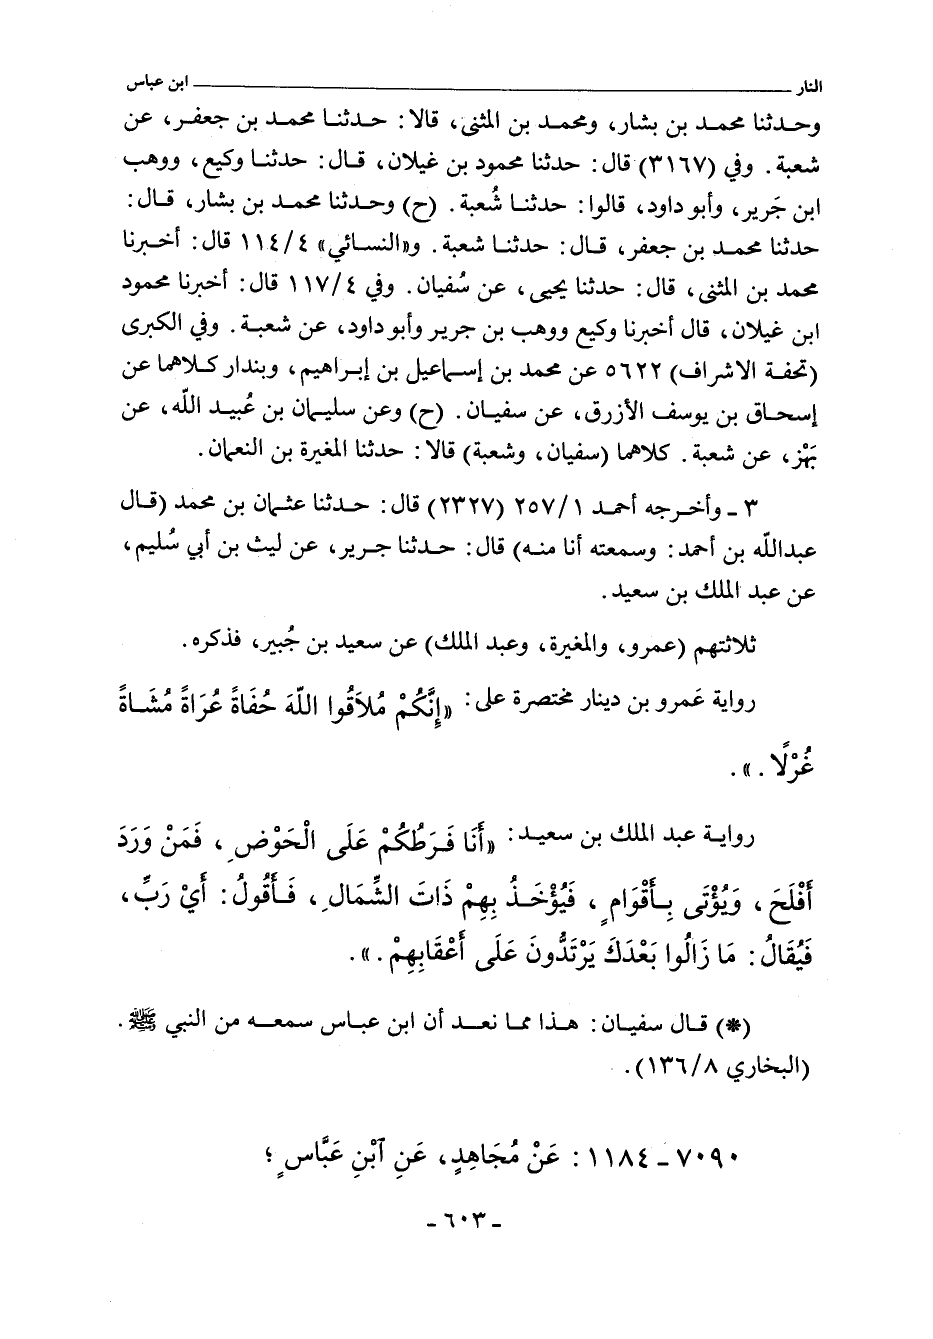 النار ــــــــــ ابن عباس
وحدثنا محمد بن بشار، ومحمد بن المثنى، قالا: حدثنا محمد بن جعفر، عن
شعبة. وفي (٣١٦٧) قال: حدثنا محمود بن غيلان، قال: حدثنا وكيع، ووهب
ابن جَرير، وأبو داود، قالوا: حدثنا شُعبة. (ح) وحدثنا محمد بن بشار، قال:
حدثنا محمد بن جعفر، قال: حدثنا شعبة. و«النسائي» ١١٤/٤ قال: أخبرنا
محمد بن المثنى، قال: حدثنا يحيى، عن سُفيان. وفي ١١٧/٤ قال: أخبرنا محمود
ابن غيلان، قال أخبرنا وكيع ووهب بن جرير وأبو داود، عن شعبة. وفي الكبرى
(تحفة الاشراف) ٥٦٢٢ عن محمد بن إسماعيل بن إبراهيم، وبندار كلاهما عن
إسحاق بن يوسف الأزرق، عن سفيان. (ح) وعن سليمان بن عُبيد الله، عن
بَهْز، عن شعبة. كلاهما (سفيان، وشعبة) قالا: حدثنا المغيرة بن النعمان.
٣ - وأخرجه أحمد ٢٥٧/١ (٢٣٢٧) قال: حدثنا عثمان بن محمد (قال
عبدالله بن أحمد: وسمعته أنا منه) قال: حدثنا جرير، عن ليث بن أبي سُليم،
عن عبد الملك بن سعيد.
ثلاثتهم (عمرو، والمغيرة، وعبد الملك) عن سعيد بن جُبير، فذكره.
رواية عَمرو بن دينار مختصرة على: «إِنَّكُمْ مُلاَقُوا اللَّهَ حُفَاةً عُرَاةً مُشَاةً
غُرْلًا.».
رواية عبد الملك بن سعيد: «أَنَا فَرَطُكُمْ عَلَى الْحَوْضِ، فَمَنْ وَرَدَ
أَفْلَحَ، وَيُؤْتَى بِأَقْوَامٍ، فَيُؤْخَذُ بِهِمْ ذَاتَ الشِّمَالِ، فَأَقُولُ: أَيْ رَبِّ،
فَيُقَالُ: مَا زَالُوا بَعْدَكَ يَرْتَدُّونَ عَلَى أَعْقَابِهِمْ.».
(*) قال سفيان: هذا مما نعد أن ابن عباس سمعه من النبي ﷺ.
(البخاري ١٣٦/٨).
٧٠٩٠ - ١١٨٤: عَنْ مُجَاهِدٍ، عَنِ ابْنِ عَبَّاسٍ؛
- ٦٠٣ -